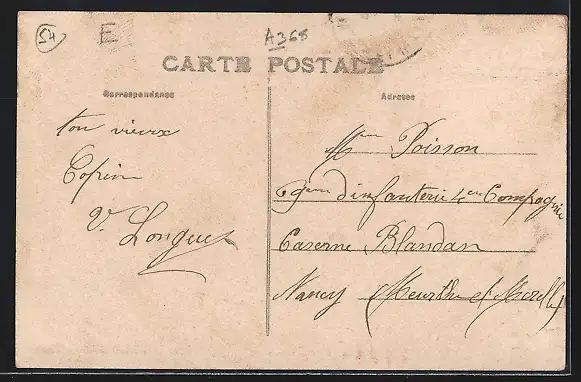 54
E
A368
CARTE POSTALE
Correspondance
Adresse
ton vieux
Copin
V. Longuet
Mr Poisson
d'infanterie 4eme Compagnie
Caserne Blandan
Nancy (Meurthe et Moselle)